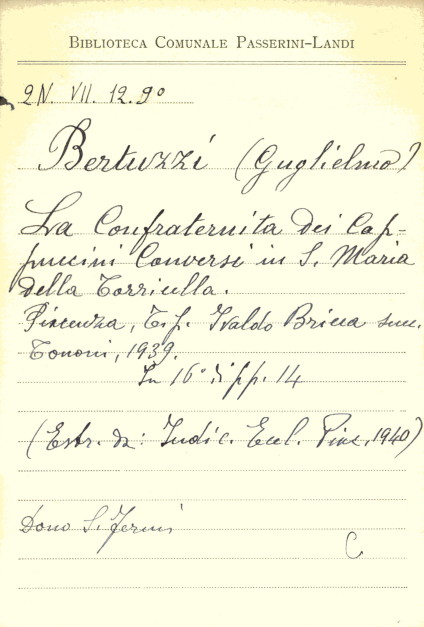 BIBLIOTECA COMUNALE PASSERINI-LANDI
2N. VII. 12. 9º
Bertuzzi (Guglielmo)
La Confraternita dei Cap-
puccini Conversi in S. Maria
della Torricella.
Piacenza, Tip. Ivaldo Bricca succ.
Tononi, 1939.
In 16º di pp. 14
(Estr. da: Indic. Eccl. Piac. 1940)
Dono S. Fermi
C